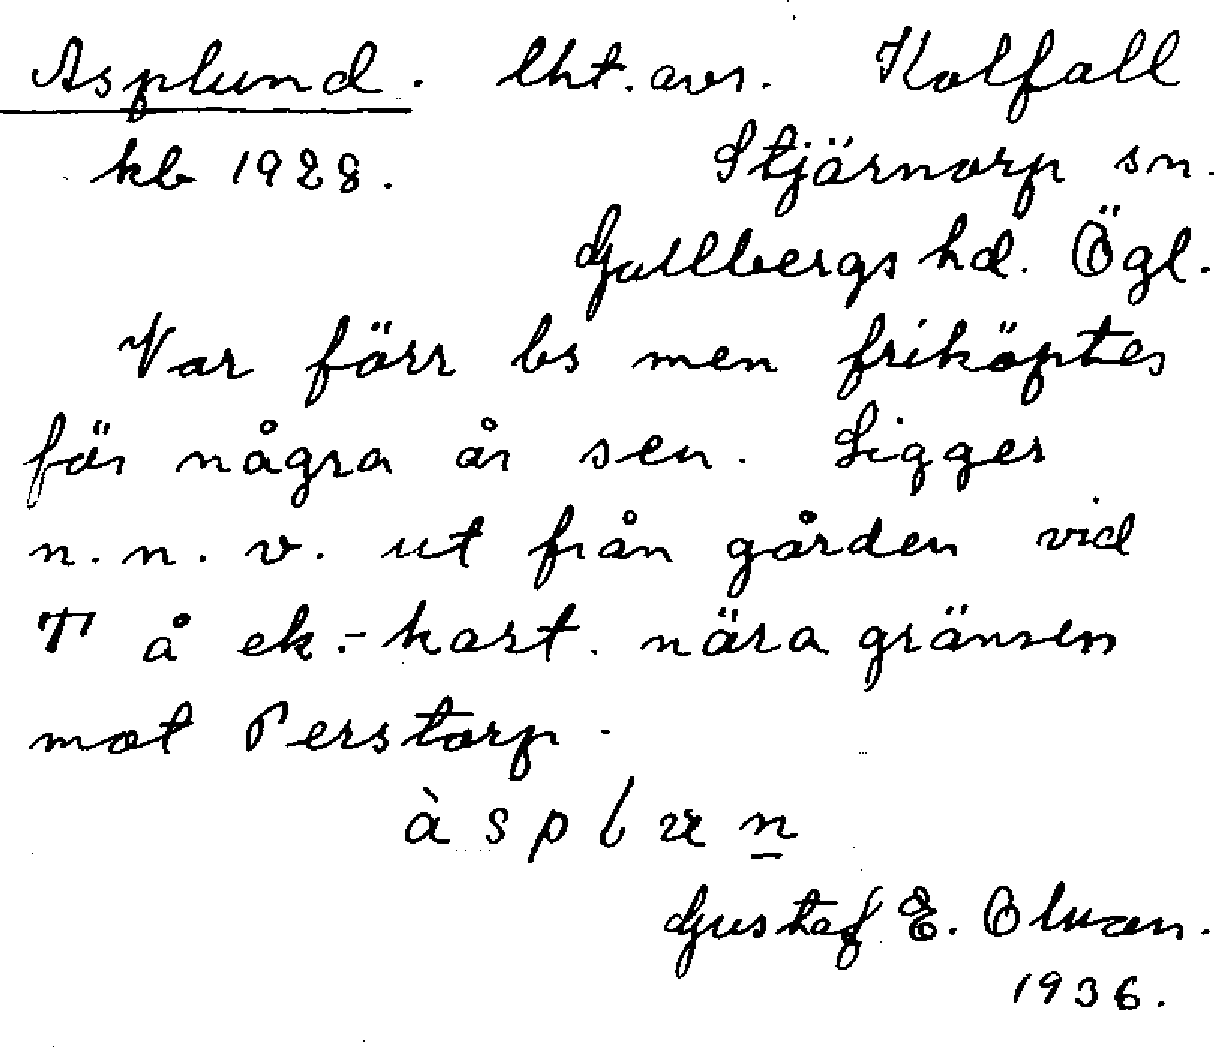 Asplund. lht. avs. Kolfall
kb 1928. Stjärnorp sn.
Gullbergs hd. Ögl.
Var förr bs men friköptes
för några år sen. Ligger
n. n. v. ut från gården vid
T å ek.-kart. nära gränsen
mot Perstorp.
à s p l n
Gustaf E.
1936.